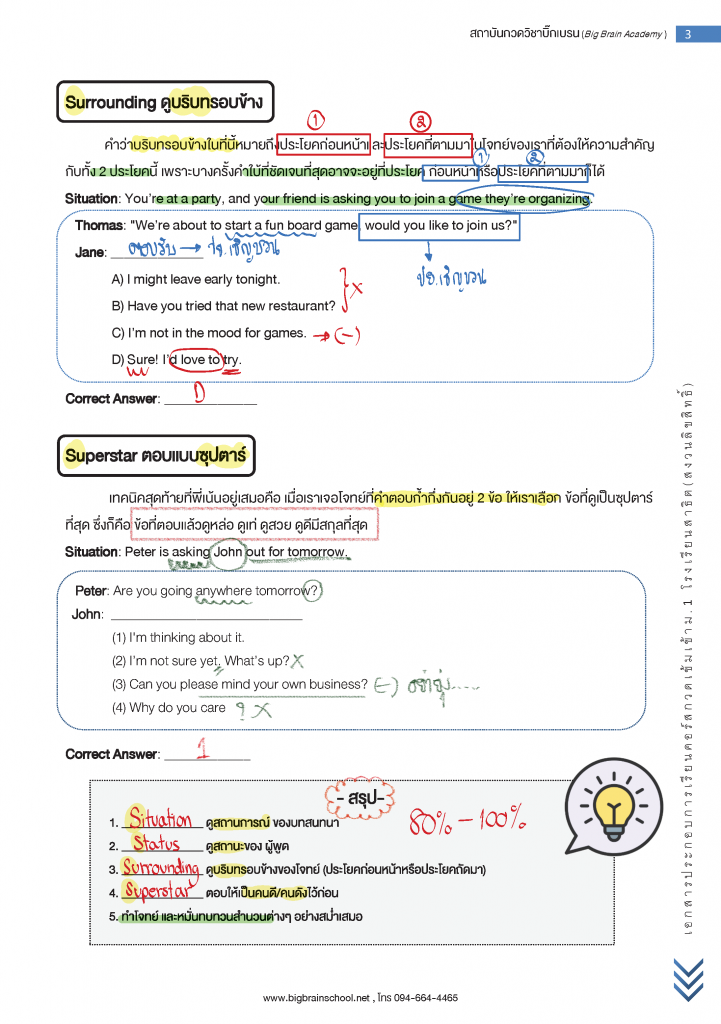 สถาบันกวดวิชาบิ๊กเบรน (Big Brain Academy ) 3
Surrounding ดูบริบทรอบข้าง
① ②
คำว่าบริบทรอบข้างในที่นี้หมายถึงประโยคก่อนหน้าและประโยคที่ตามมาในโจทย์ของเราที่ต้องให้ความสำคัญ
① ②
กับทั้ง 2 ประโยคนี้ เพราะบางครั้งคำใบ้ที่ชัดเจนที่สุดอาจจะอยู่ที่ประโยค ก่อนหน้าหรือประโยคที่ตามมาก็ได้
Situation: You're at a party, and your friend is asking you to join a game they're organizing.
Thomas: "We're about to start a fun board game, would you like to join us?"
Jane: ตอบรับ → ปย.เชิญชวน
ปย.เชิญชวน
A) I might leave early tonight.
B) Have you tried that new restaurant? } X
C) I'm not in the mood for games. → (-)
D) Sure! I'd love to try.
Correct Answer: D
Superstar ตอบแบบซุปตาร์
เทคนิคสุดท้ายที่พี่เน้นอยู่เสมอคือ เมื่อเราเจอโจทย์ที่คำตอบก้ำกึ่งกันอยู่ 2 ข้อ ให้เราเลือก ข้อที่ดูเป็นซุปตาร์
ที่สุด ซึ่งก็คือ ข้อที่ตอบแล้วดูหล่อ ดูเท่ ดูสวย ดูดีมีสกุลที่สุด
Situation: Peter is asking John out for tomorrow.
Peter: Are you going anywhere tomorrow?
John: ____________________
(1) I'm thinking about it.
(2) I'm not sure yet. What's up? X
(3) Can you please mind your own business? (-) อย่ายุ่ง.....
(4) Why do you care ? X
Correct Answer: 1
- สรุป-
80% - 100%
1. Situation ดูสถานการณ์ ของบทสนทนา
2. Status ดูสถานะของ ผู้พูด
3. Surrounding ดูบริบทรอบข้างของโจทย์ (ประโยคก่อนหน้าหรือประโยคถัดมา)
4. Superstar ตอบให้เป็นคนดี/คนดังไว้ก่อน
5. ทำโจทย์ และหมั่นทบทวนสำนวนต่างๆ อย่างสม่ำเสมอ
เอกสารประกอบการเรียนคอร์สกวดเข้มเข้าม.1 โรงเรียนสาธิต(สงวนลิขสิทธิ์)
www.bigbrainschool.net , โทร 094-664-4465